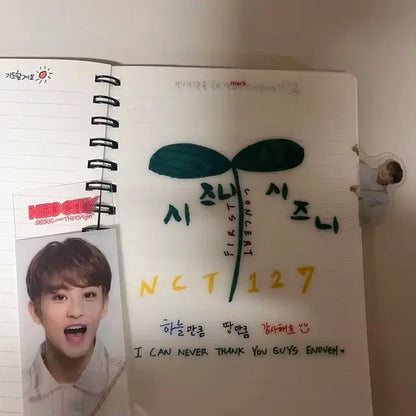 기도할게요
mark
시 즈니 시 즈 니
FIRST CONCERT
NCT 127
하늘만큼 땅만큼 감사해요
I CAN NEVER THANK YOU GUYS ENOUGH
NEO CITY
SEOUL - The Origin